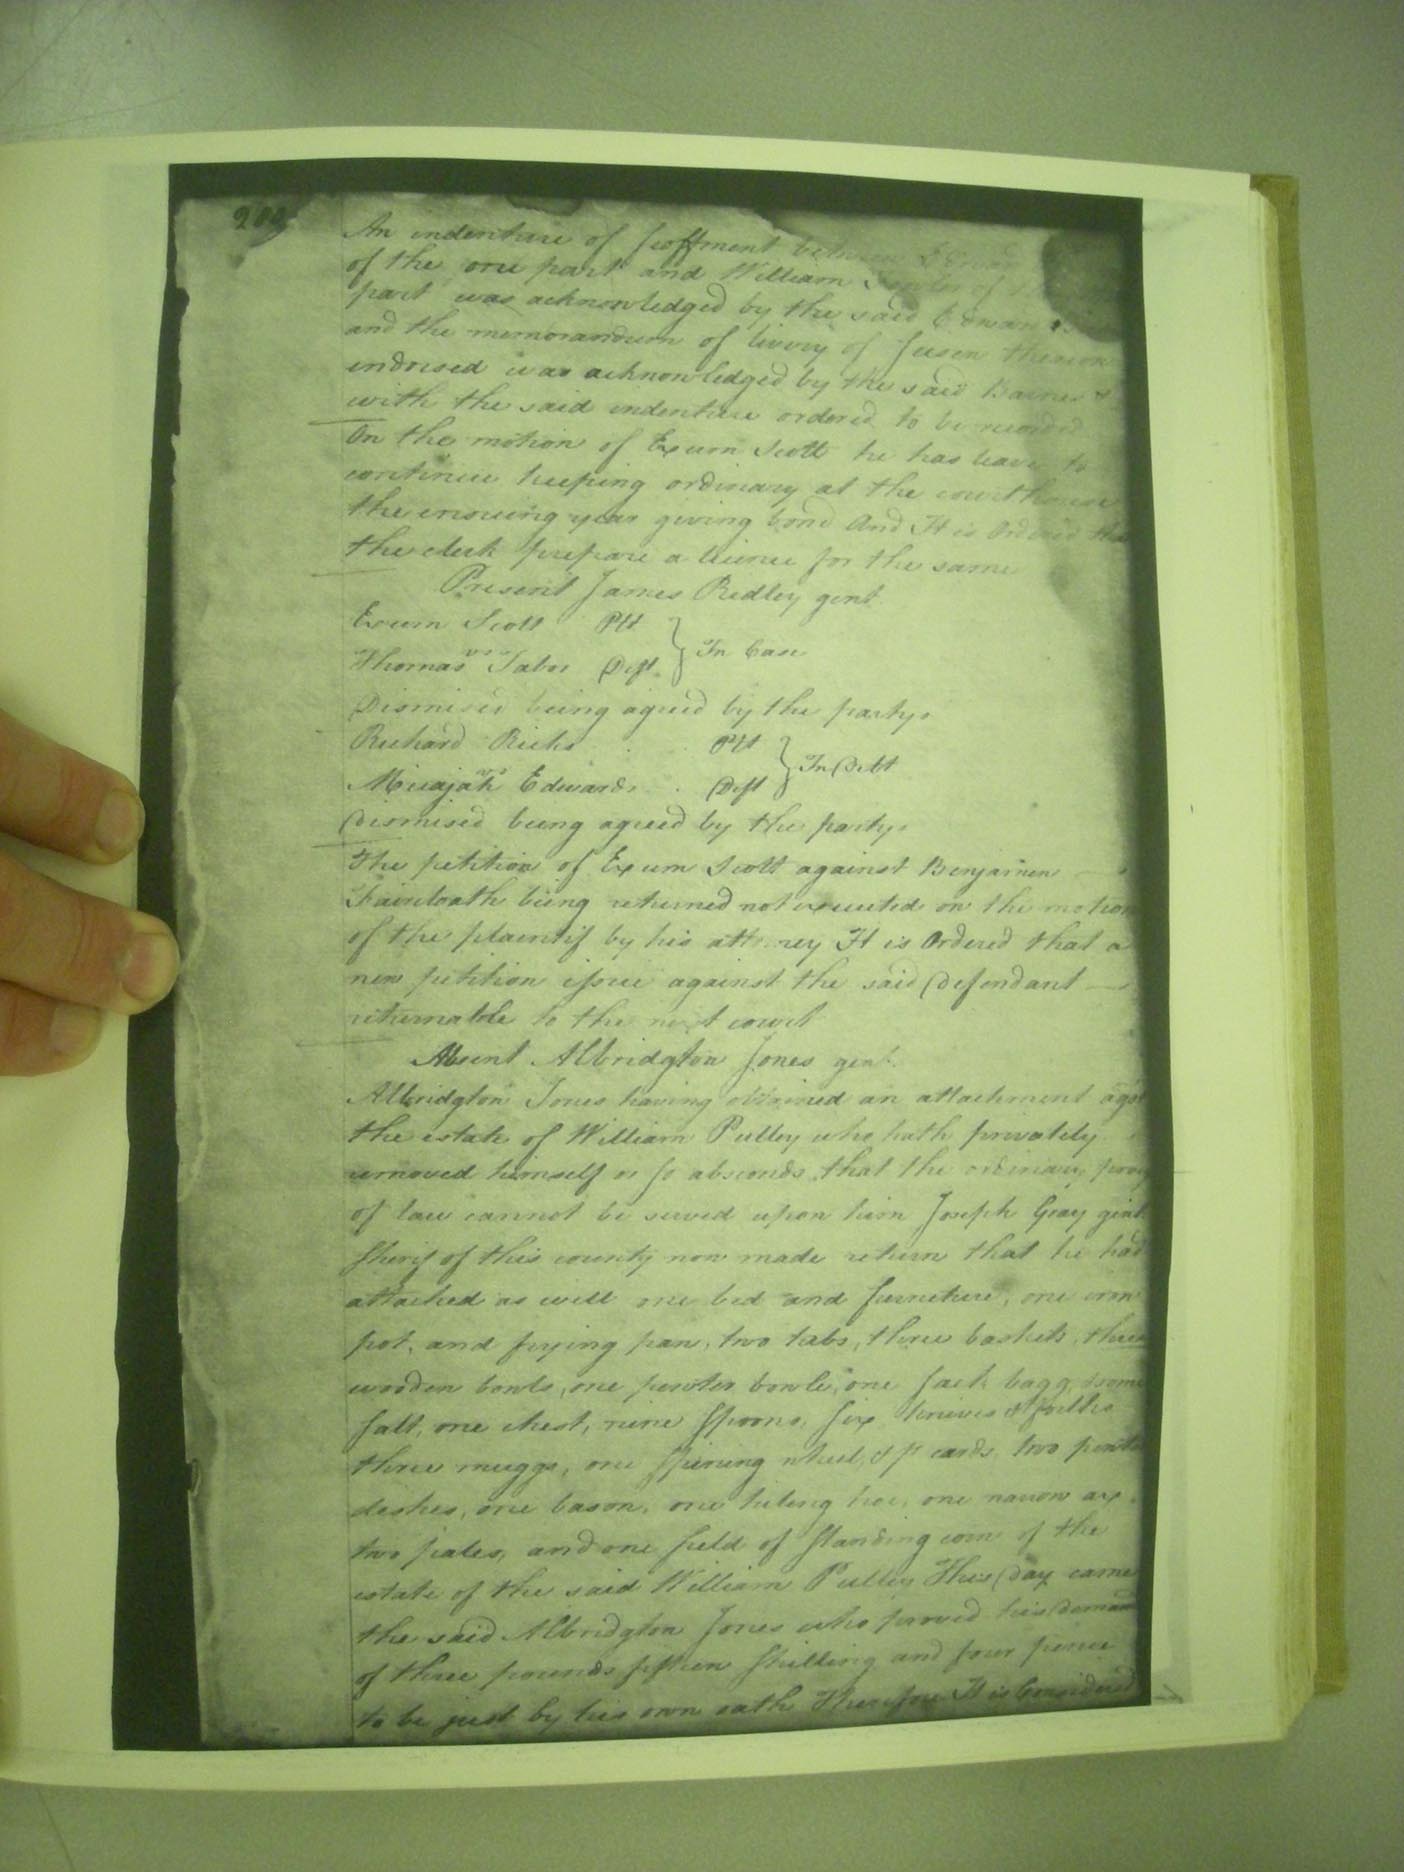 An indenture of feoffment between Edward
of the one part and William of
part was acknowledged by the said Edward
and the memorandum of livery of seisen thereon
endorsed was acknowledged by the said Barnes &
with the said indenture ordered to be recorded
On the motion of Exum Scott he has leave to
continue keeping ordinary at the courthouse
the ensuing year giving bond And It is Ordered that
the clerk prepare a licence for the same
Present James Ridley gent
Exum Scott Plt
vs } In Case
Thomas Tabor Deft
Dismised being agreed by the partys
Richard Ricks Plt
vs } In Debt
Micajah Edwards Deft
Dismised being agreed by the partys
The petition of Exum Scott against Benjamin
Faircloath being returned not executed on the motion
of the plaintif by his attorney It is Ordered that a
new petition issue against the said Defendant
returnable to the next court
Absent Albridgton Jones gent.
Albridgton Jones having obtained an attachment agst
the estate of William Pulley who hath privately
removed himself or so absconds that the ordinary
of law cannot be served upon him Joseph Gray gent
sherif of this county now made return that he had
attached as well one bed and furneture, one iron
pot, and frying pan, two tubs, three baskets, three
wooden bowls, one pewter bowle, one sack bagg, some
salt, one chest, nine spoons, six knives & forks
three muggs, one spining wheel, & pr cards, two pewter
dishes, one bason, one hileng hoe, one narrow ax,
two pales, and one field of standing corn of the
estate of the said William Pulley This Day came
the said Albridgton Jones who proved his Demand
of three pounds fifteen shilling and four pence
to be just by his own oath Therefore It is Considered